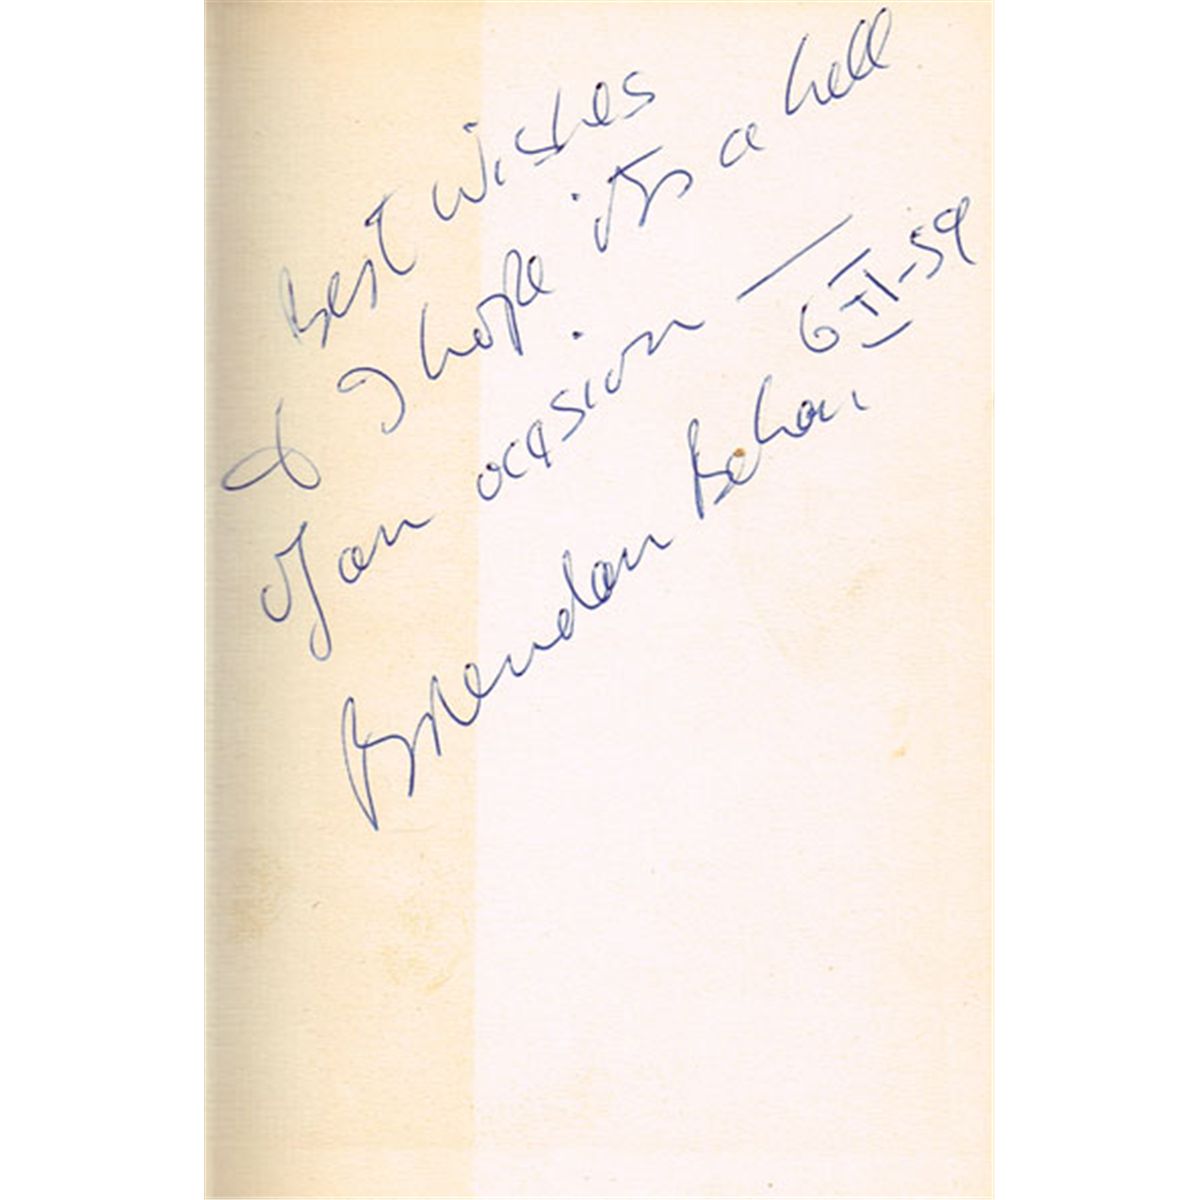 Best wishes
& I hope it's a hell
of an occasion —
6 II-59
Brendan Behan